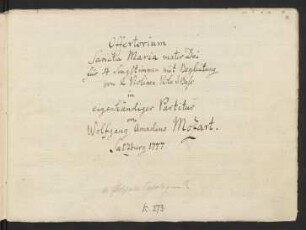 Offertorium
Sancta Maria mater Dei
für 4 Singstimmen mit Begleitung
von 2 Violinen, Viola & Bass
in
eigenhändiger Partitur
von
Wolfgang Amadeus Mozart.
Salzburg 1777.
K. 273